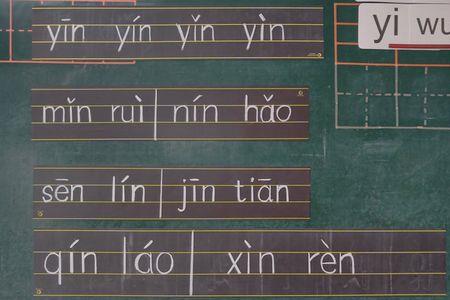 yīn yín yǐn yìn
yi wu
mǐn ruì | nín hǎo
sēn lín | jīn tiān
qín láo | xìn rèn